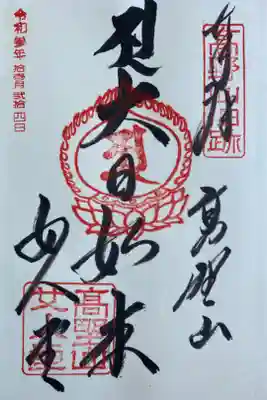 奉拜
高野山
大日如来
女人堂
高野山
女人堂
令和參年拾壹月貳拾四日